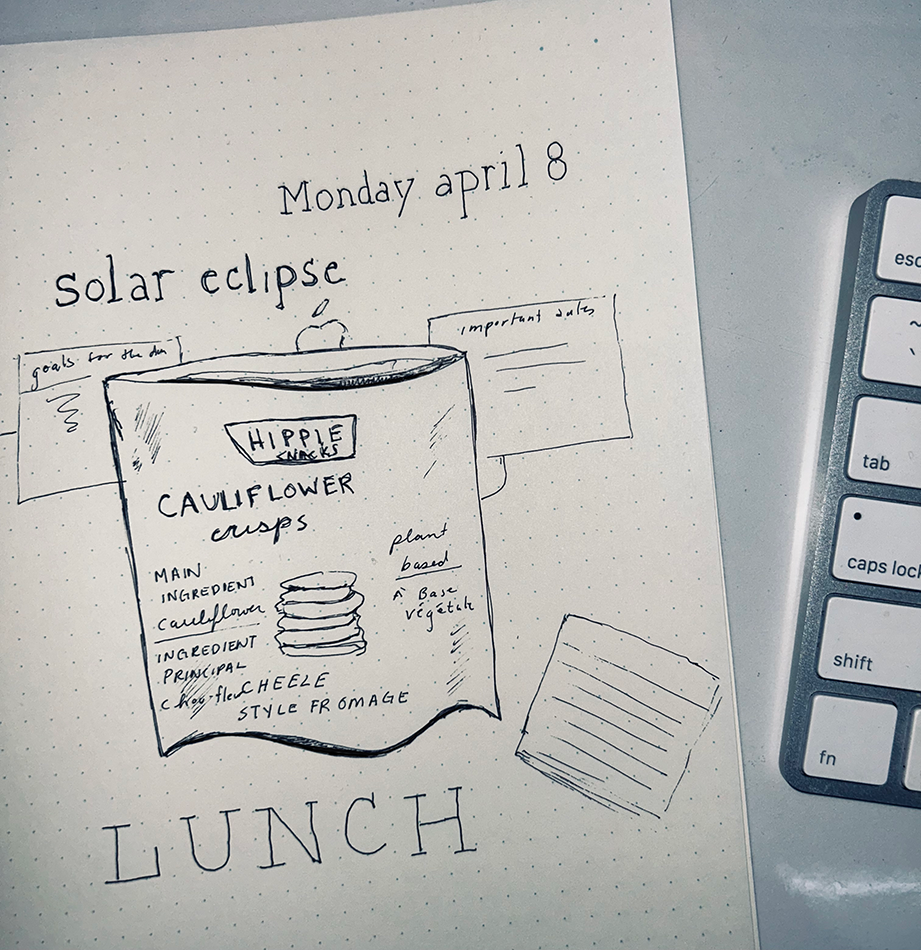 Monday april 8
solar eclipse
goals for the day
important dates
HIPPIE
SNACKS
CAULIFLOWER
crisps
plant
based
A Base
végétale
MAIN
INGREDIENT
Cauliflower
INGREDIENT
PRINCIPAL
chou-fleur
CHEELE
STYLE FROMAGE
LUNCH
esc
~
`
tab
caps lock
shift
fn